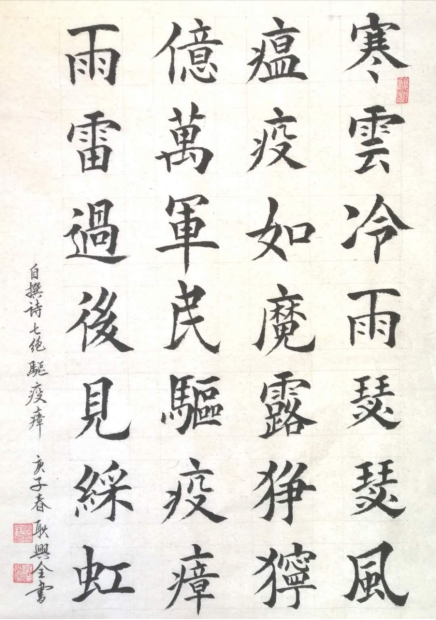 寒雲冷雨瑟瑟風
瘟疫如魔露猙獰
億萬軍民驅疫瘴
雨雷過後見綵虹
自撰诗七绝駆疫瘴 亥子春耿興全書